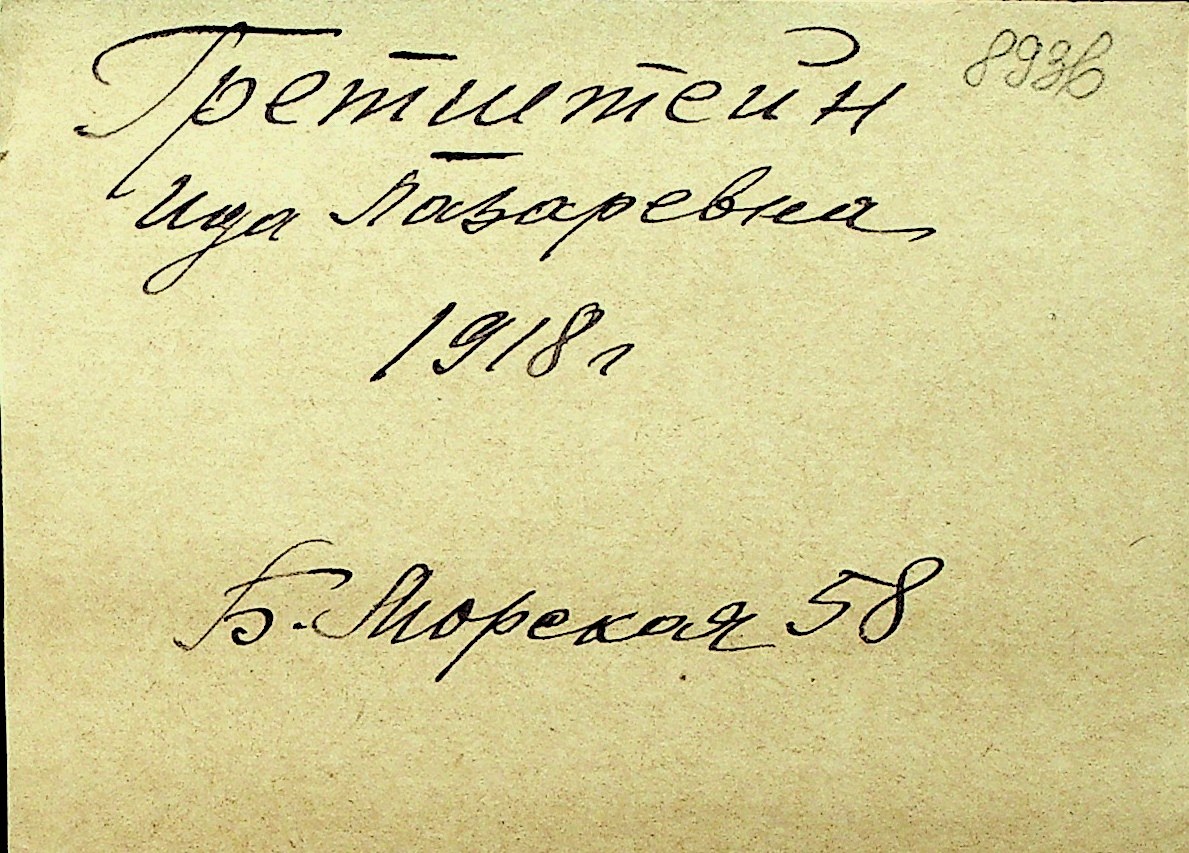 Гретштейн 893в
Ида Лазаревна
1918 г
Б. Морская 58